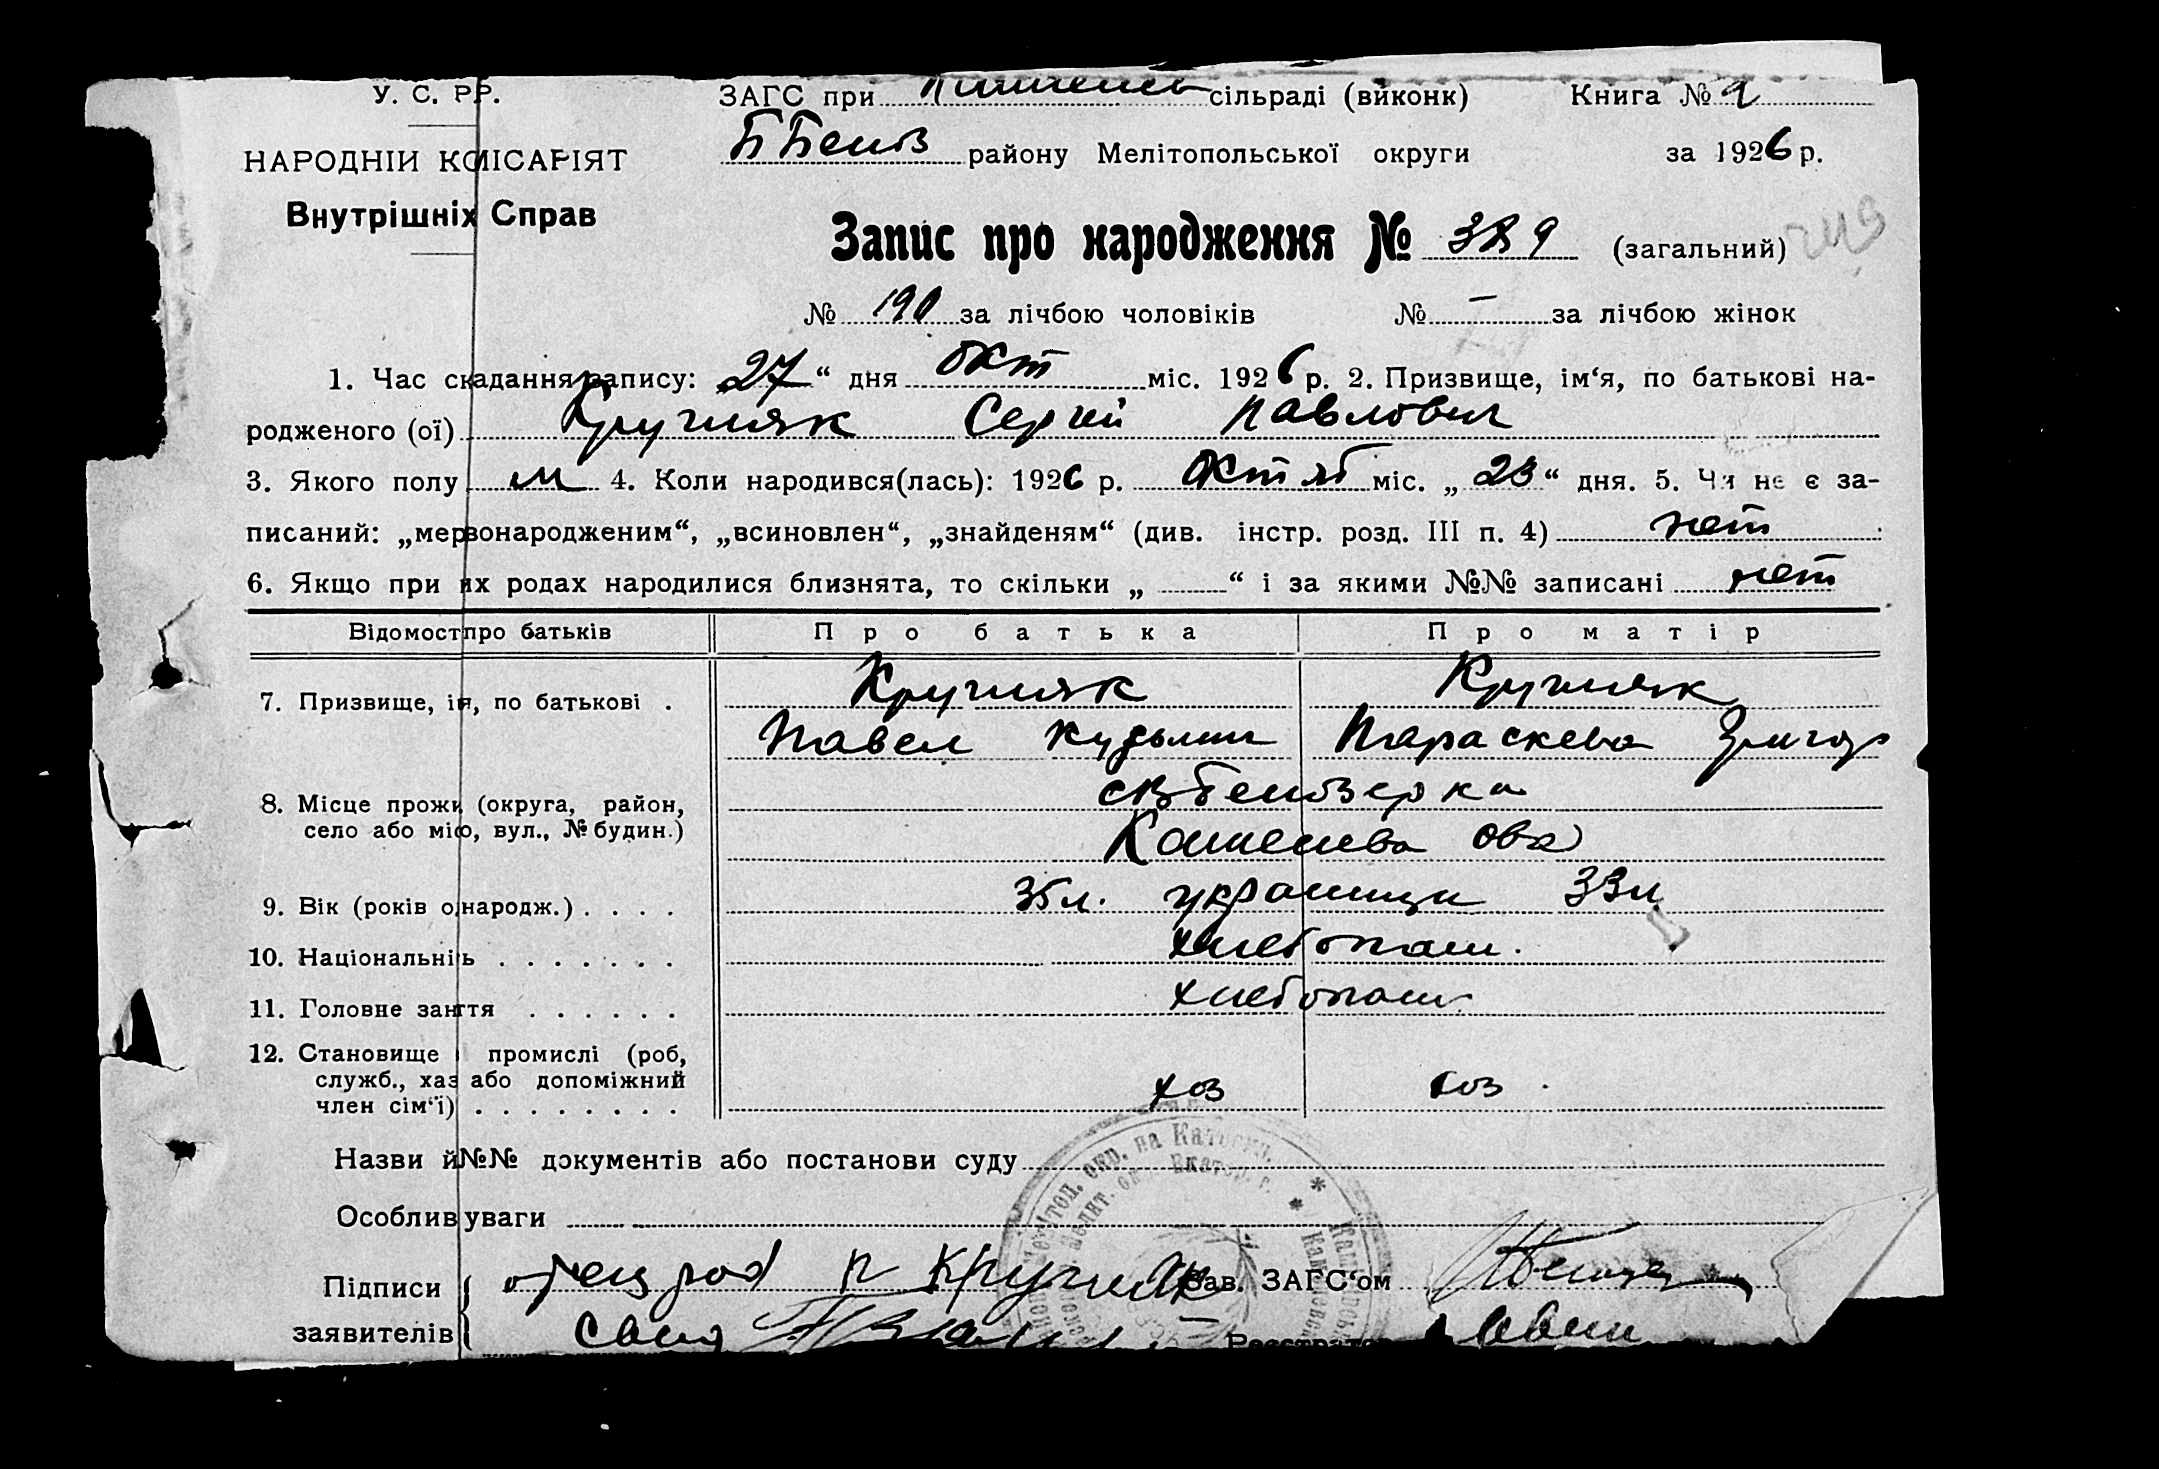 У. С. РР.
ЗАГС при сільраді (виконк) Книга №
НАРОДНІЙ КОМІСАРІЯТ
Б Белоз району Мелітопольської округи за 1926 р.
Внутрішніх Справ
Запис про народження № 389 (загальний)
№ 190 за лічбою чоловіків № — за лічбою жінок
1. Час складання запису: 27 “ дня окт міс. 1926 р. 2. Призвище, ім‘я, по батькові на-
родженого (ої) Кругляк Сергей Павлович
3. Якого полу м 4. Коли народився(лась): 1926 р. Октяб міс. „ 23 “ дня. 5. Чи не є за-
писаний: „мервонародженим“, „всиновлен“, „знайденям“ (див. інстр. розд. III п. 4) нет
6. Якщо при их родах народилися близнята, то скільки „ “ і за якими №№ записані нет
Відомост про батьків Про батька Про матір
7. Призвище, ім'я, по батькові . Кругляк Кругляк
Павел Кузьмич Параскева Григор
8. Місце прожи (округа, район, Белозерка
село або місто, вул., № будин.)
9. Вік (років от народж.) . . . . 35 л. украинцы 33 л
10. Національність . . . . . . . хлебопаш.
11. Головне заняття . . . . . . хлебопаш
12. Становище в промислі (роб,
служб., хаз або допоміжний хоз хоз .
член сім‘ї) . . . . . . . .
Назви й №№ документів або постанови суду
Особлив уваги
Підписи отец род П Кругляк Зав. ЗАГС‘ом
заявителів Реєстратор